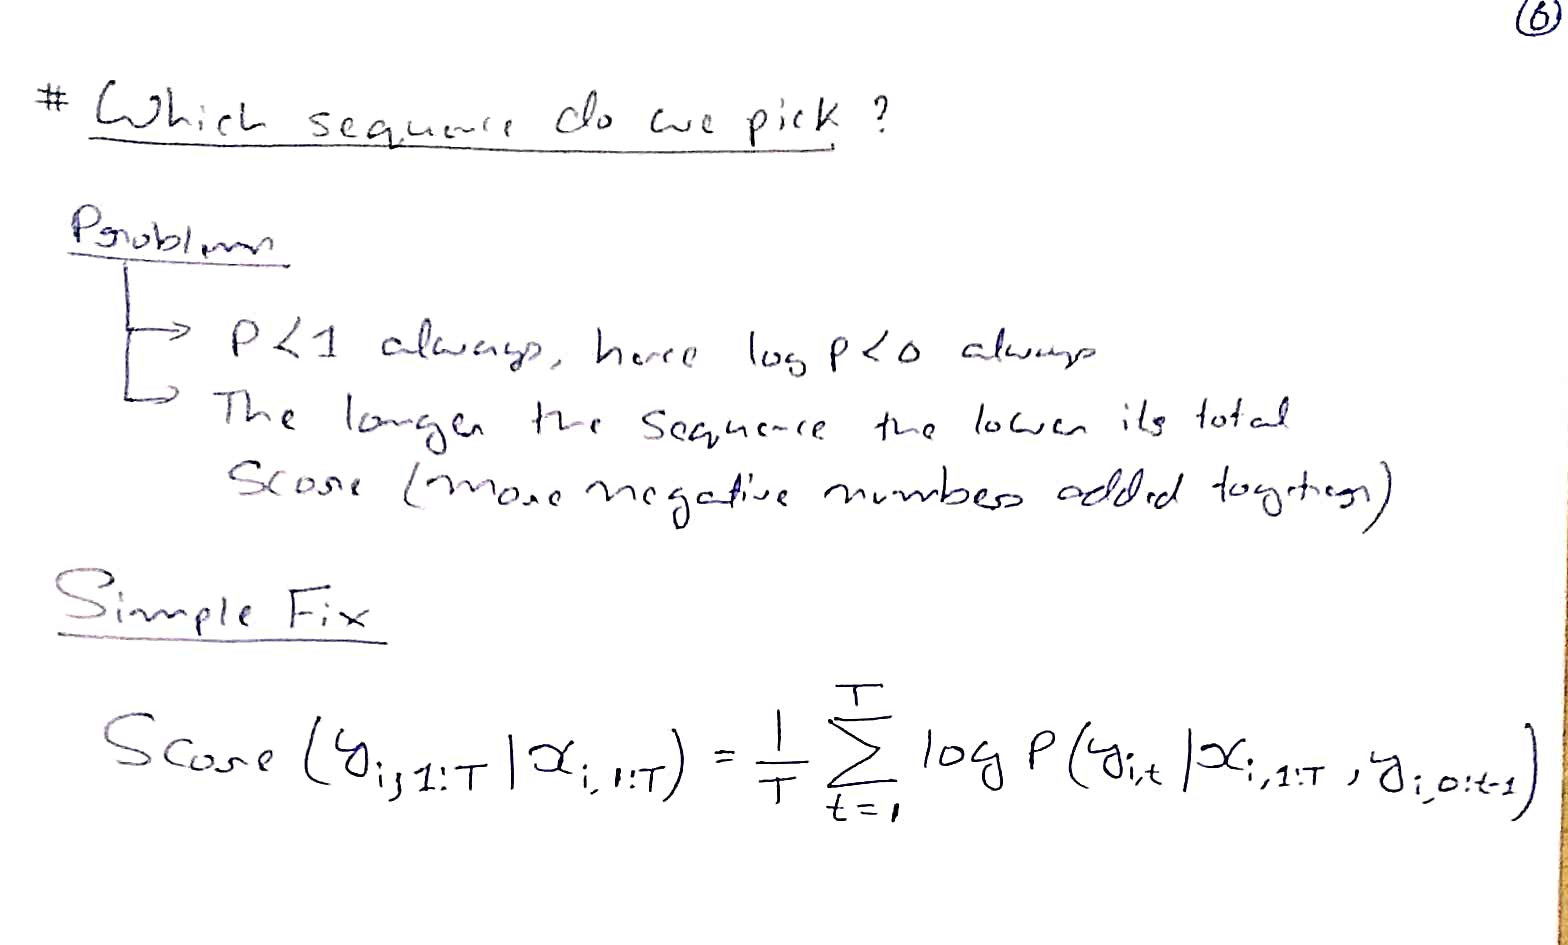 (6)
# Which sequence do we pick ?
Problem
→ P<1 always, hence log P<0 always
→ The longer the sequence the lower its total
Score (more negative numbers added together)
Simple Fix
Score (y_{i,1:T} | x_{i,1:T}) = 1/T ∑_{t=1}^{T} log P (y_{i,t} | x_{i,1:T}, y_{i,0:t-1})